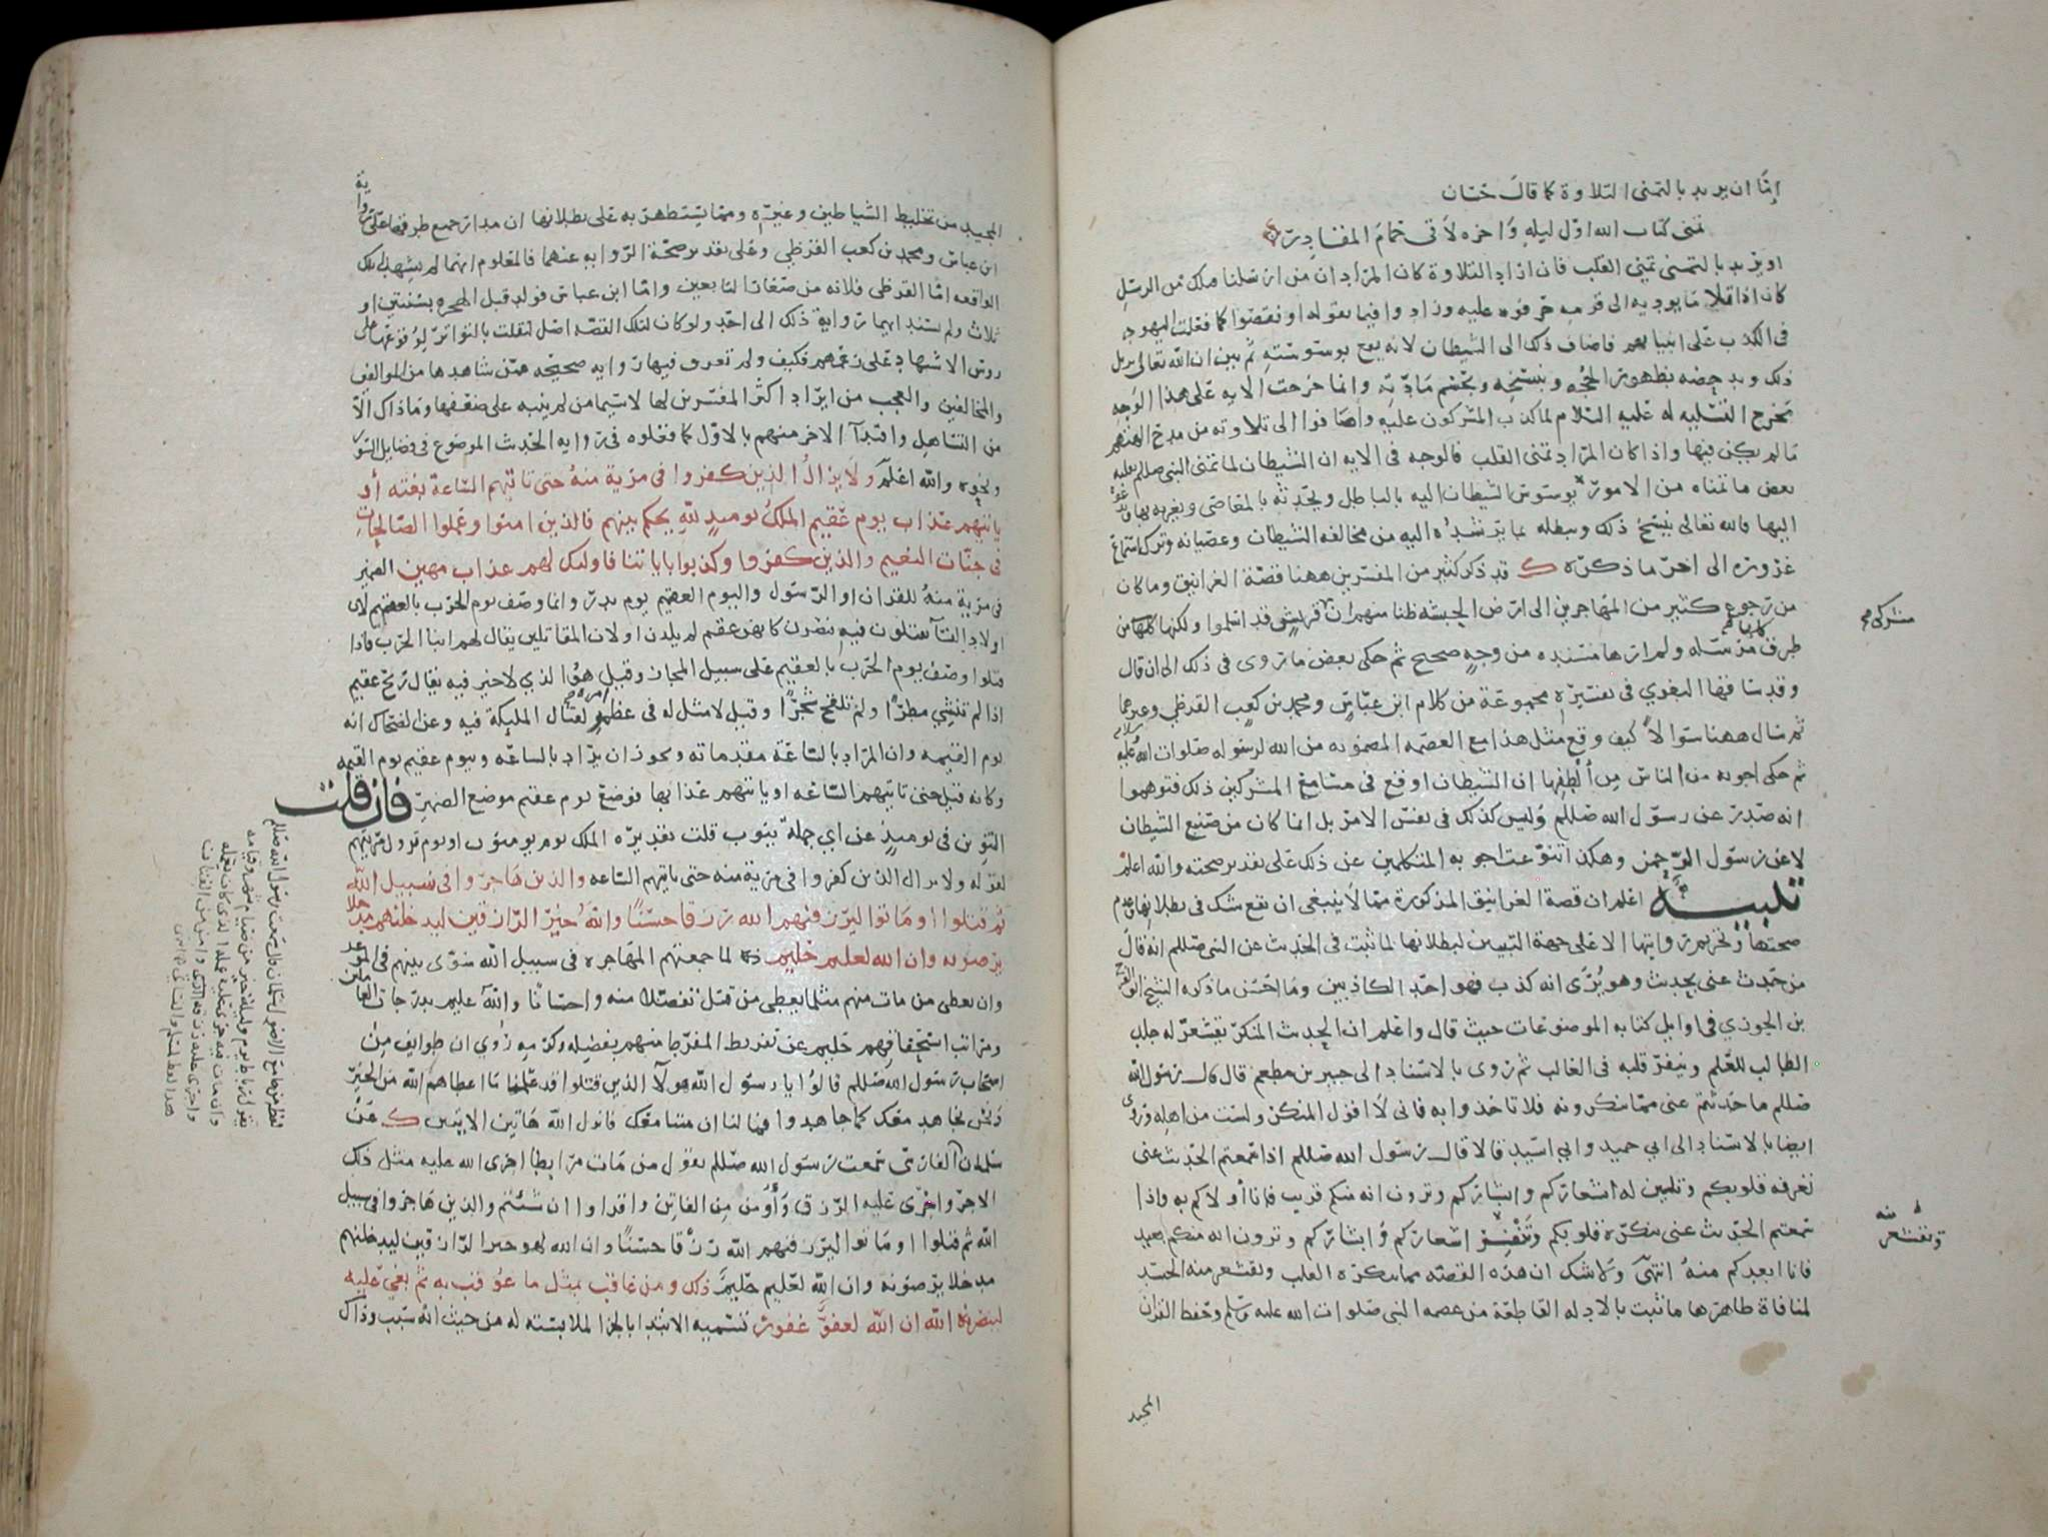 إما ان يريد بالتمنى التلاوة كما قال حسان
تمنى كتاب الله اول ليله واخره لاقى حمام المقادر
او يريد بالتمنى تمنى القلب فان اراد التلاوة كان المراد ان من ارسلنا قبلك من الرسل
كان اذا تلا ما يوديه الى قومه حرفوه عليه وزادوا فيما يقوله او نقصوا كما فعلت اليهود
فى الكذب على انبيايهم فاضاف ذلك الى الشيطان لانه يقع بوسوسته ثم بين ان الله تعالى يزيل
ذلك ويدحضه بظهور الحجه وينسخه ويحسم مادته وانما خرجت الايه على هذا الوجه
مخرج التسليه له عليه السلام لما كذب المشركون عليه واضافوا الى تلاوته من مدح الهتهم
ما لم يكن فيها واذا كان المراد تمنى القلب فالوجه فى الايه ان الشيطان لما تمنى النبى صللم
بعض ما تمناه من الامور يوسوس الشيطان اليه بالباطل ويحدثه بالمعاصى ويغريه بها
اليها فالله تعالى ينسخ ذلك ويبطله بما يرشده اليه من مخالفه الشيطان وعصيانه وترك استماع
غروره الى اخر ما ذكره ك قد ذكر كثير من المفسرين ههنا قصة الغرانيق وما كان
من رجوع كثير من المهاجرين الى ارض الحبشه ظنا منهم ان قريش قد اسلموا ولكنها كلها من
مشركى
طرف مرسله ولم ارها مسنده من وجه صحيح ثم حكى بعض ما روى فى ذلك الى ان قال
وقد ساقها البغوي فى تفسيره مجموعة من كلام ابن عباس ومحمد بن كعب القرظي وغيرهما
ثم سال ههنا سوالا كيف وقع مثل هذا مع العصمه المضمونه من الله لرسوله صلوات الله عليه
ثم حكى اجوبه من الناس من الطفها ان الشيطان اوقع فى مسامع المشركين ذلك فتوهموا
انه صدر عن رسول الله صللم وليس كذلك فى نفس الامر بل انما كان من صنيع الشيطان
لا عن رسول الرحمن وهكذا تنوعت اجوبه المتكلمين عن ذلك على تقدير صحته والله اعلم
تنبيه اعلم ان قصة الغرانيق المذكورة مما لا ينبغى ان يقع شك فى بطلانها وعدم
صحتها وتحريم روايتها الا على جهة التبيين لبطلانها لما ثبت فى الحديث عن النبى صللم انه قال
من حدث عنى بحديث وهو يرى انه كذب فهو احد الكاذبين وما احسن ما ذكره الشيخ ابو الفرج
بن الجوزي فى اوايل كتابه الموضوعات حيث قال واعلم ان الحديث المنكر يقشعر له جلد
الطالب للعلم وينفر قلبه فى الغالب ثم روى بالاسناد الى جبير بن مطعم قال قال رسول الله
صللم ما حدثتم عنى مما تنكرونه فلا تاخذوا به فانى لا اقول المنكر ولست من اهله وروى
ايضا بالاسناد الى ابي حميد وابي اسيد قالا قال رسول الله صللم اذا سمعتم الحديث عنى
تعرفه قلوبكم وتلين له اشعاركم وابشاركم وترون انه منكم قريب فانا أولاكم به واذا
سمعتم الحديث عنى تنكره قلوبكم وتنفر اشعاركم وابشاركم وترون انه منكم بعيد
منه
وتقشعر
فانا ابعدكم منه انتهى ولا شك ان هذه القصه مما تنكره القلب وتقشعر منه الجسد
لمنافاة ظاهرها ما ثبت بالادله القاطعة من عصمه النبى صلوات الله عليه وسلم وحفظ القران
المجيد
المجيد من تخليط الشياطين وغيره ومما يستظهر به على بطلانها ان مدار جميع طرقها على رواية
ابن عباس ومحمد بن كعب القرظي وعلى تقدير صحة الروايه عنهما فالمعلوم انهما لم يشهدا تلك
الواقعه اما القرظى فلانه من صغار التابعين واما ابن عباس فولد قبل الهجره بسنتين او
ثلاث ولم يسندا بهما رواية ذلك الى احد ولو كان لتلك القصه اصل لنقلت بالتواتر لوقوعها على
روس الاشهاد على زعمهم فكيف ولم تعرف فيها روايه صحيحه عمن شاهدها من الموالفين
والمخالفين والعجب من ايراد اكثر المفسرين لها لا سيما من لم ينبه على ضعفها وما ذاك الا
من التساهل واقتداء الاخر منهم بالاول كما فعلوه فى روايه الحديث الموضوع فى فضايل السور
ونحوه والله اعلم ولا يزال الذين كفروا فى مرية منه حتى تاتيهم الساعة بغتة أو
ياتيهم عذاب يوم عقيم الملك يوميذ لله يحكم بينهم فالذين امنوا وعملوا الصالحات
فى جنات النعيم والذين كفروا وكذبوا باياتنا فاوليك لهم عذاب مهين الضمير
فى مرية منه للقران او الرسول واليوم العقيم يوم بدر وانما وصف يوم الحرب بالعقيم لان
اولاد النسآ يقتلون فيه فيصرن كانهن عقم لم يلدن او لان المقاتلين يقال لهم ابنا الحرب فاذا
قتلوا وصف يوم الحرب بالعقيم على سبيل المجاز وقيل هو الذي لا خير فيه يقال ريح عقيم
اذا لم تنشي مطرا ولم تلقح شجرا وقيل لا مثل له فى عظم امره لقتال المليكة فيه وعن الضحاك انه
يوم القيمه وان المراد بالساعة مقدماته ويجوز ان يراد بالساعه وبيوم عقيم يوم القيمه
وكانه قيل حتى تاتيهم الساعه او ياتيهم عذابها فوضع يوم عقيم موضع الضمير فان قلت
التنوين فى يوميذ عن اي جملة ينوب قلت تقديره الملك يوم يومنون او يوم تزول مريتهم
لقوله ولا يزال الذين كفروا فى مرية منه حتى تاتيهم الساعه والذين هاجروا فى سبيل الله
ثم قتلوا او ماتوا ليرزقنهم الله رزقا حسنا وان الله لهو خير الرازقين ليدخلنهم مدخلا
يرضونه وان الله لعليم حليم لما جمعتهم المهاجره فى سبيل الله سوى بينهم فى الموعد
وان يعطى من مات منهم مثل ما يعطى من قتل تفضلا منه واحسانا والله عليم بدرجات العاملين
ومراتب استحقاقهم حليم عن تفريط المفرط منهم بفضله وكرمه روي ان طوايف من
اصحاب رسول الله صللم قالوا يا رسول الله هولآ الذين قتلوا قد علمنا ما اعطاهم الله من الخير
ونحن نجاهد معك كما جاهدوا فما لنا ان متنا معك فانزل الله هاتين الايتين ك عن
سلمان الفارسى سمعت رسول الله صللم يقول من مات مرابطا اجرى الله عليه مثل ذلك
الاجر واجرى عليه الرزق وأومن من الفاتنين واقراوا ان شئتم والذين هاجروا فى سبيل
الله ثم قتلوا او ماتوا ليرزقنهم الله رزقا حسنا وان الله لهو خير الرازقين ليدخلنهم
مدخلا يرضونه وان الله لعليم حليم ذلك ومن عاقب بمثل ما عوقب به ثم بغي عليه
لينصرنه الله ان الله لعفو غفور تسميه الابتدا بالجزا لملابسته له من حيث انه سبب وذاك
سلمان قال سمعت رسول الله صللم
يقول رباط يوم وليلة خير من صيام شهر وقيامه
وان مات فيه جرى عليه عمله الذى كان يعمله
واجرى عليه رزقه وامن من الفتان
هذا لفظ مسلم